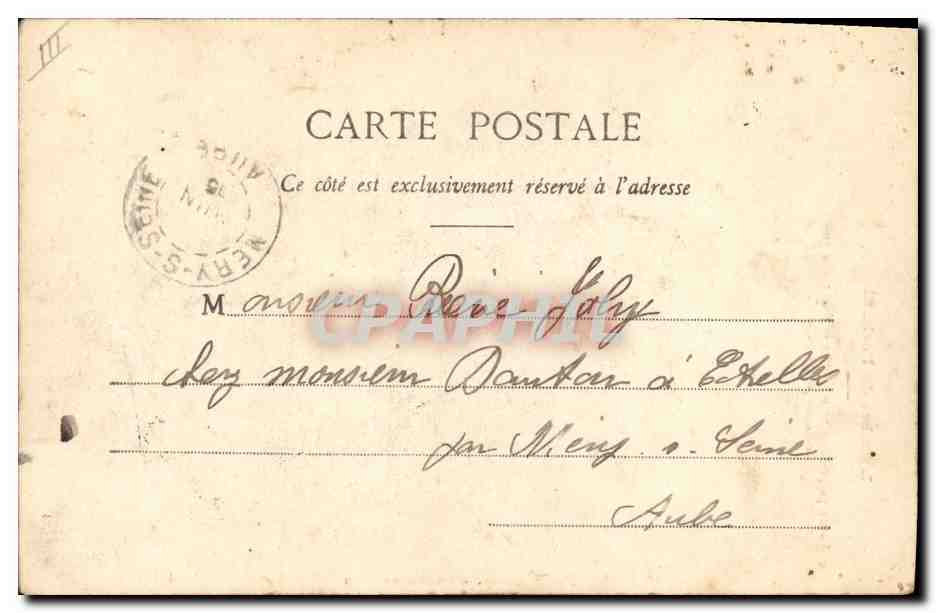 III
CARTE POSTALE
Ce côté est exclusivement réservé à l'adresse
MERY-S-SEINE AUBE
Monsieur René Joly
CPAPHIL
chez monsieur Danton à Etrelles
par Méry s. Seine
Aube